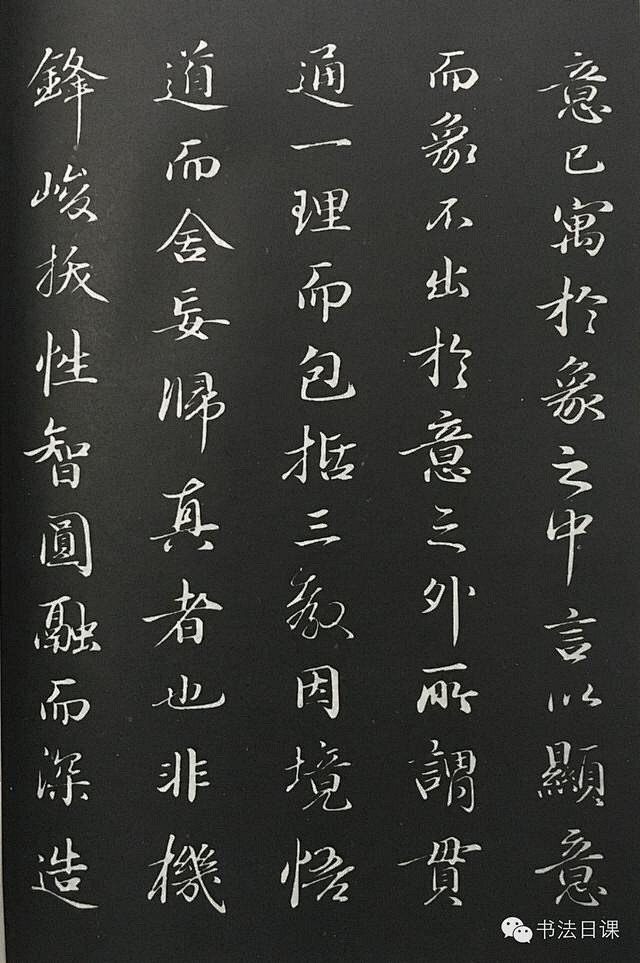 意已寓於象之中言以顯意
而象不出於意之外所謂貫
通一理而包括三教因境悟
道而舍妄歸真者也非機
鋒峻拔性智圓融而深造
书法日课